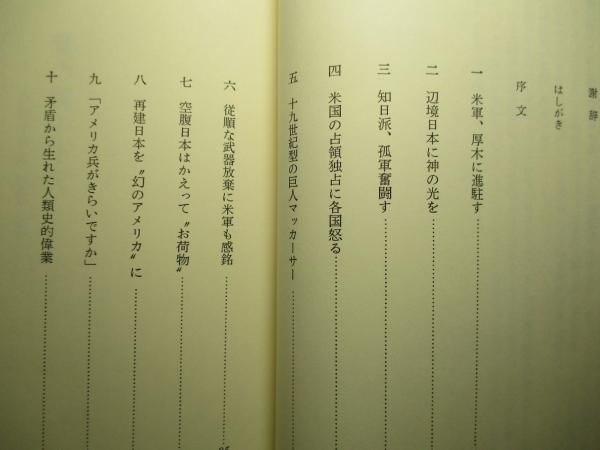 謝辞
はしがき
序文
一 米軍、厚木に進駐す
二 辺境日本に神の光を
三 知日派、孤軍奮闘す
四 米国の占領独占に各国怒る
五 十九世紀型の巨人マッカーサー
六 従順な武器放棄に米軍も感銘
七 空腹日本はかえって〝お荷物〟
八 再建日本を〝幻のアメリカ〟に
九 「アメリカ兵がきらいですか」
十 矛盾から生れた人類史的偉業